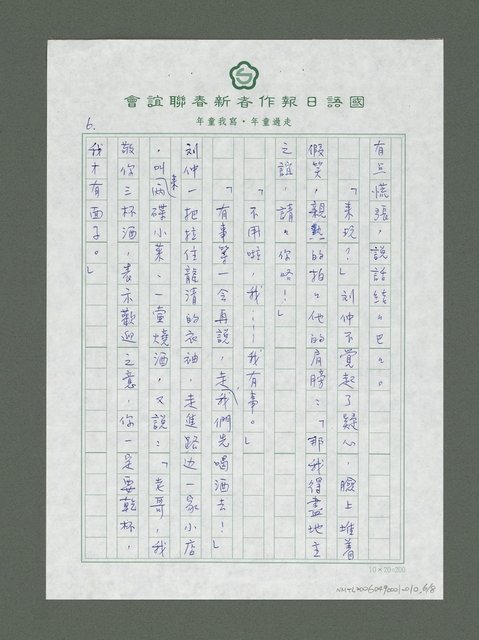 國語日報作者新春聯誼會
走過童年・寫我童年
6.
有点慌張，說話結々巴々。
「來玩？」刘仲不覺起了疑心，臉上堆着
假笑，親熱的拍々他的肩膀：「那我得盡地主
之誼，請々你咯！」
「不用啦，我……我有事。」
「有事等一会再說，走，我們先喝酒去！」
刘仲一把拉住龍清的衣袖，走進路边一家小店
，叫來兩碟小菜、一壺燒酒，又說：「老哥，我
敬你三杯酒，表示歡迎之意，你一定要乾杯，
我才有面子。」
10×20=200
NMTL20060490001-010_6/8